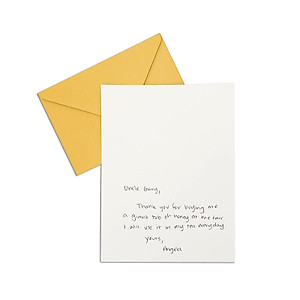 Uncle Gary,
Thank you for buying me
a giant tub of honey at the fair
I will use it in my tea everyday
yours,
Angela